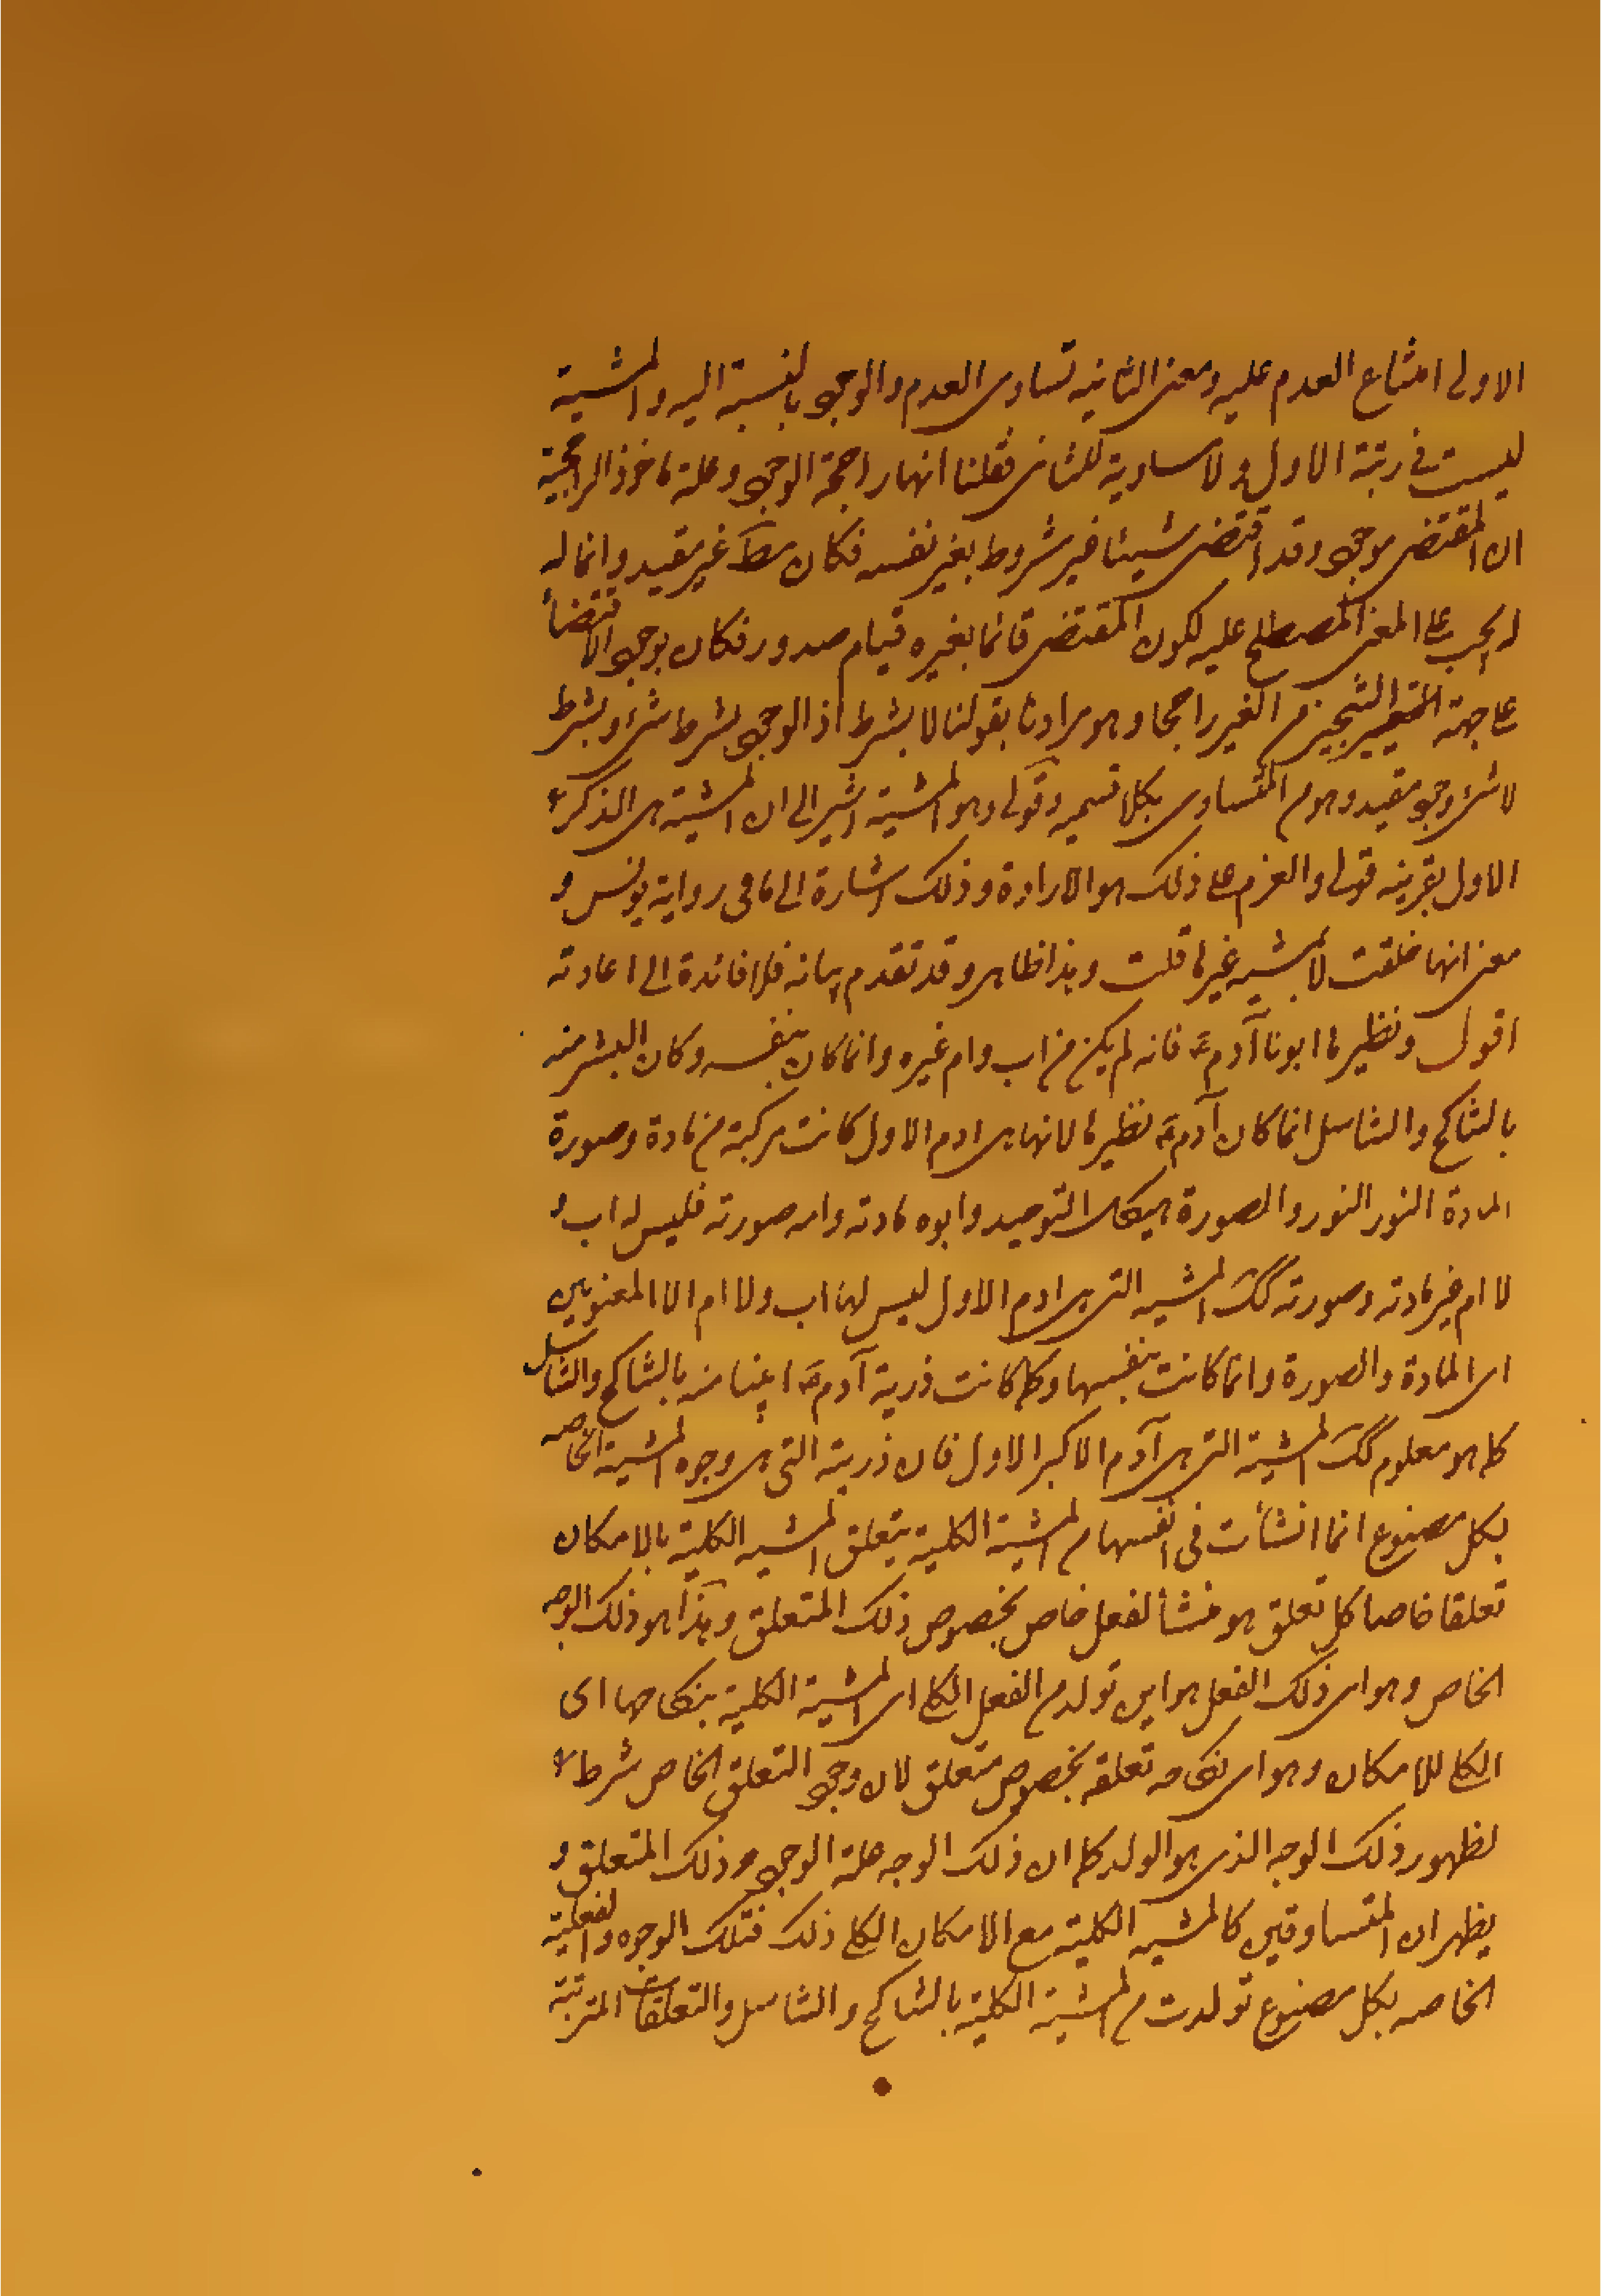 الاولى امتناع العدم عليه ومعنى الثانيه تساوى العدم والوجو بالنسبة اليه والمشية
ليست فى رتبة الاول ولا مساوية للثانى فقلنا انها راجحة الوجو وعلة ماخوذ الراجحية
ان المقتضى موجو وقد اقتضى شيئا غير مشروط بغير نفسه فكان مط غير مقيد وانما له
لم يجب على المعنى المصطلح عليه لكون المقتضى قائما بغيره قيام صدور فكان بوجو الاقتضاء
على جهة التنجيز من الغير راجحا وهو مرادنا بقولنا لا بشرط اذ الوجو بشرط شئ وبشرط
لا شئ وجو مقيد وهو من المتساوى بكلا قسميه وقولى وهو المشية اشير الى ان المشية هى الذكر
الاول بقرينه قولى والعزم على ذلك هو الارادة وذلك اشارة الى ما فى رواية يونس و
معنى انها خلقت لا بمشيه غيرها قلت وهذا ظاهر وقد تقدم بيانه فلا فائدة الى اعادته
اقول ونظيرها ابونا آدم ع فانه لم يكن من اب وام غيره وانما كان بنفسه وكان البشر منه
بالتناكح والتناسل انما كان آدم ع نظيرها لانها هى ادم الاول كانت مركبة من مادة وصورة
المادة النور النور والصورة هيكل التوحيد وابوه مادته وامه صورته فليس له اب و
لا ام غير مادته وصورته كك المشيه التى هى ادم الاول ليس لها اب ولا ام الا المعنويين
اى المادة والصورة وانما كانت بنفسها وكما كانت ذرية آدم ع ابنا منه بالتناكح والتناسل
كما هو معلوم كك المشية التى هى آدم الاكبر الاول فان ذريته التى هى وجوه المشية الخاصه
بكل مصنوع انما انشأت فى انفسها من المشية الكلية بتعلق المشيه الكلية بالامكان
تعلقا خاصا كل تعلق هو منشأ لفعل خاص بخصوص ذلك المتعلق وهذا هو ذلك الوجه
الخاص وهو اى ذلك الفعل هو ابن تولد من الفعل الكلى اى المشية الكلية بنكاحها اى
الكلى للامكان وهو اى نكاحه تعلقه بخصوص متعلق لان وجو التعلق الخاص شرط
لظهور ذلك الوجه الذى هو الولد كما ان ذلك الوجه علة الوجو ذلك المتعلق و
يظهر ان المتساوقين كالمشيه الكلية مع الامكان الكلى ذلك فتلك الوجوه والفعلية
الخاصه بكل مصنوع تولدت من المشية الكلية بالتناكح والتناسل والتعلقات المترتبة